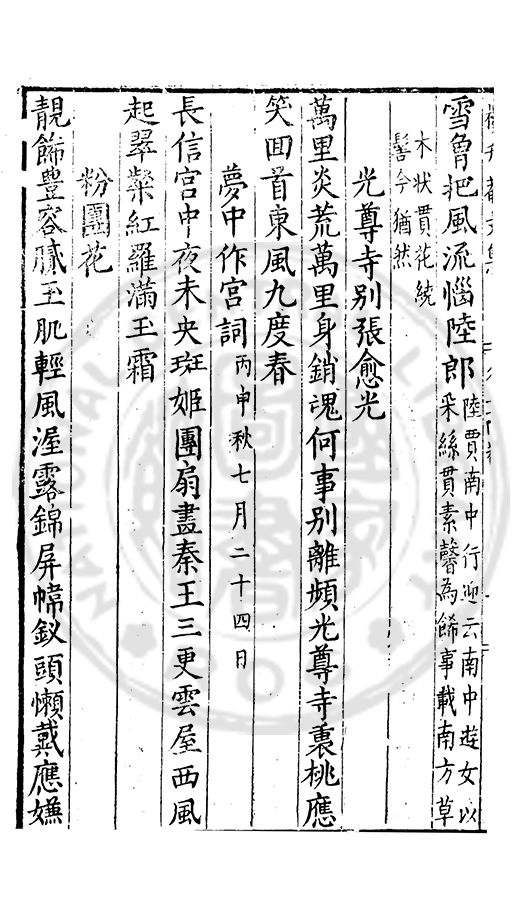 雪把風流惱陸郎陸賈南中行迎云南中遊女以
采絲貫素馨為餙事載南方草
木狀貫花繞
髻今猶然
光尊寺别張愈光
萬里炎荒萬里身銷魂何事别離頻光尊寺裏桃應
笑回首東風九度春
夢中作宫詞丙申秋七月二十四日
長信宫中夜未央斑姬團扇畫秦王三更雲屋西風
起翠紅羅滿玉霜
粉團花
靚餙豊容膩玉肌輕風渥露錦屏幃釵頭懶戴應嫌